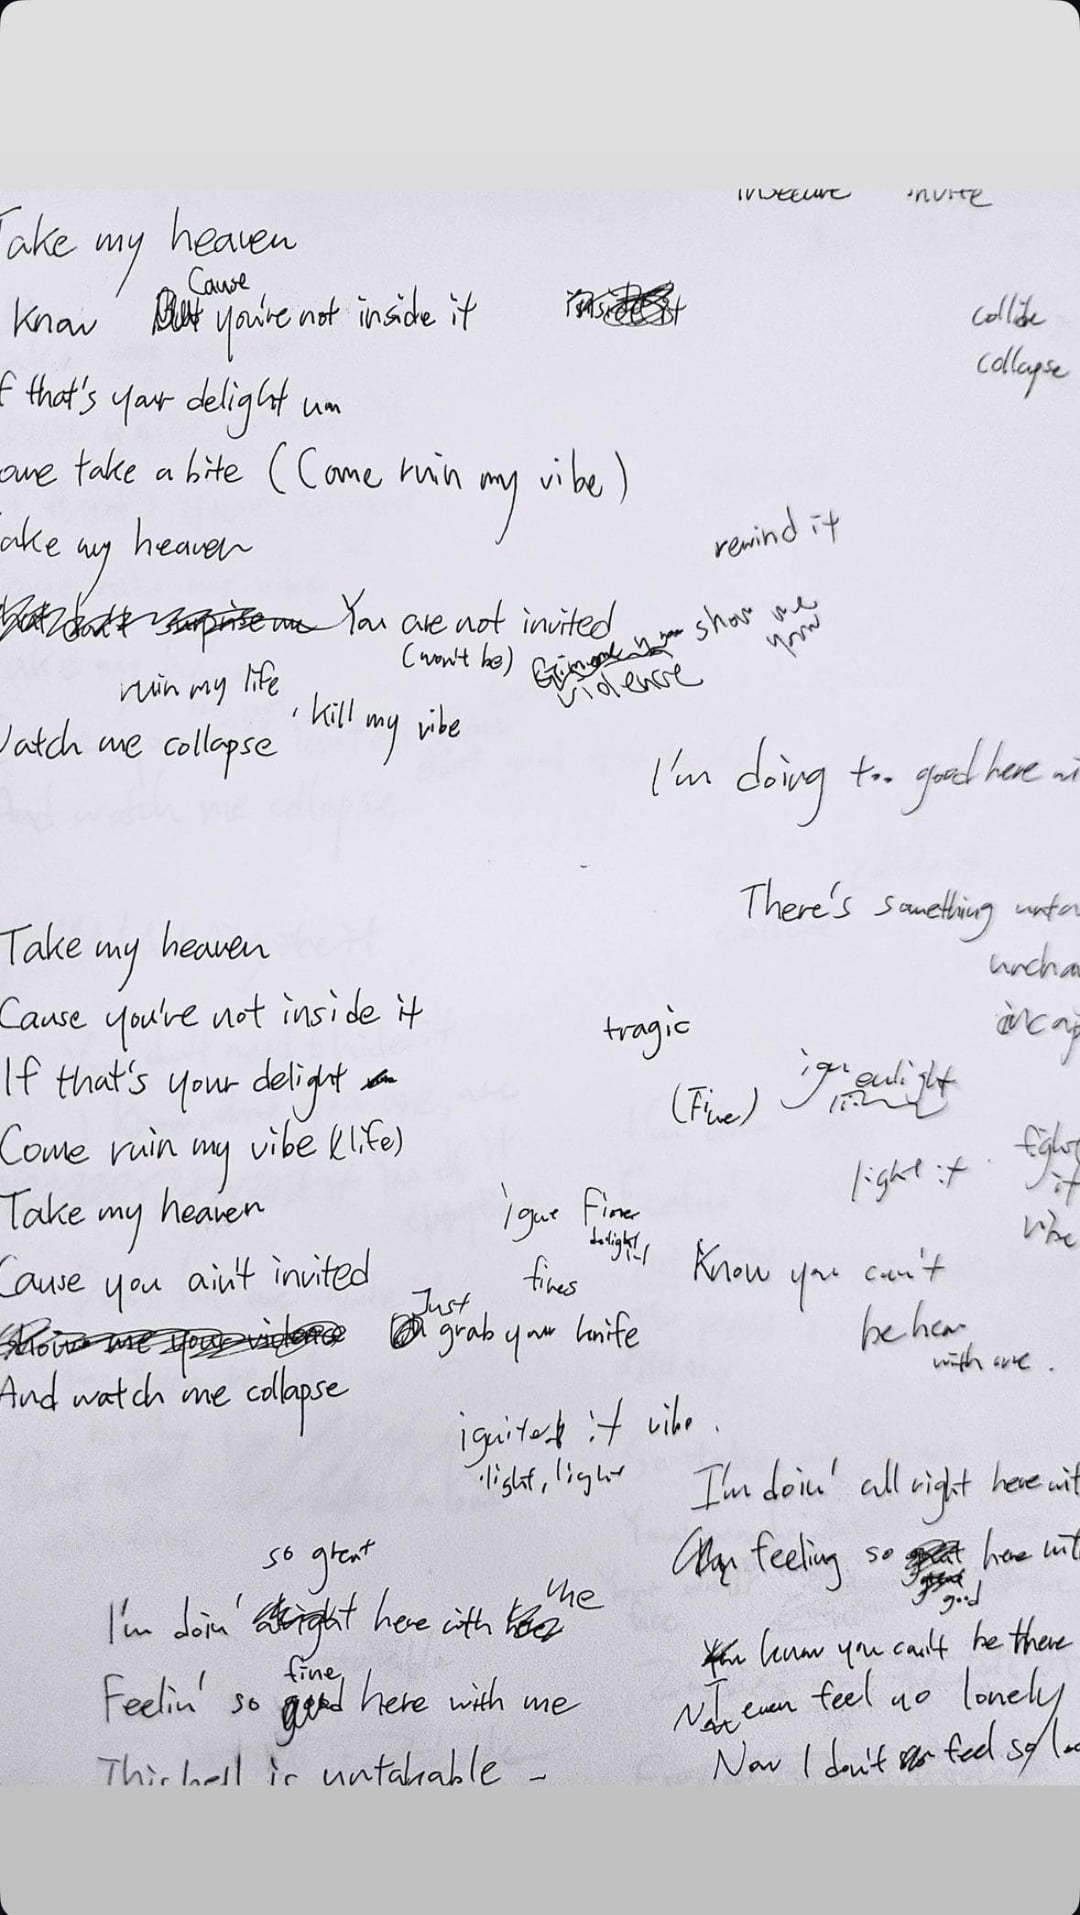 insecure invite
Take my heaven
Know Cause you're not inside it
inside it
collide
collapse
f that's your delight um
ome take a bite (Come ruin my vibe)
ake my heaven
rewind it
surprise me You are not invited
(won't be)
show me your
violence
ruin my life, kill my vibe
Watch me collapse
I'm doing too good here wi
There's something unta
uncha
incap
Take my heaven
Cause you're not inside it
tragic
If that's your delight
(Fine)
Come ruin my vibe (life)
light it
fight it
vibe
Take my heaven
delight
fines
Know you can't
be here
with me.
Cause you ain't invited
Just
show me your violence grab your knife
And watch me collapse
ignited it vibe.
light, light
I'm doin' all right here wit
feeling so great here wit
great
good
so great
I'm doin' alright here with me
fine
Feelin' so good here with me
This hell is untakable -
You know you can't be there
Not even feel no lonely
I
Now I don't feel so lo